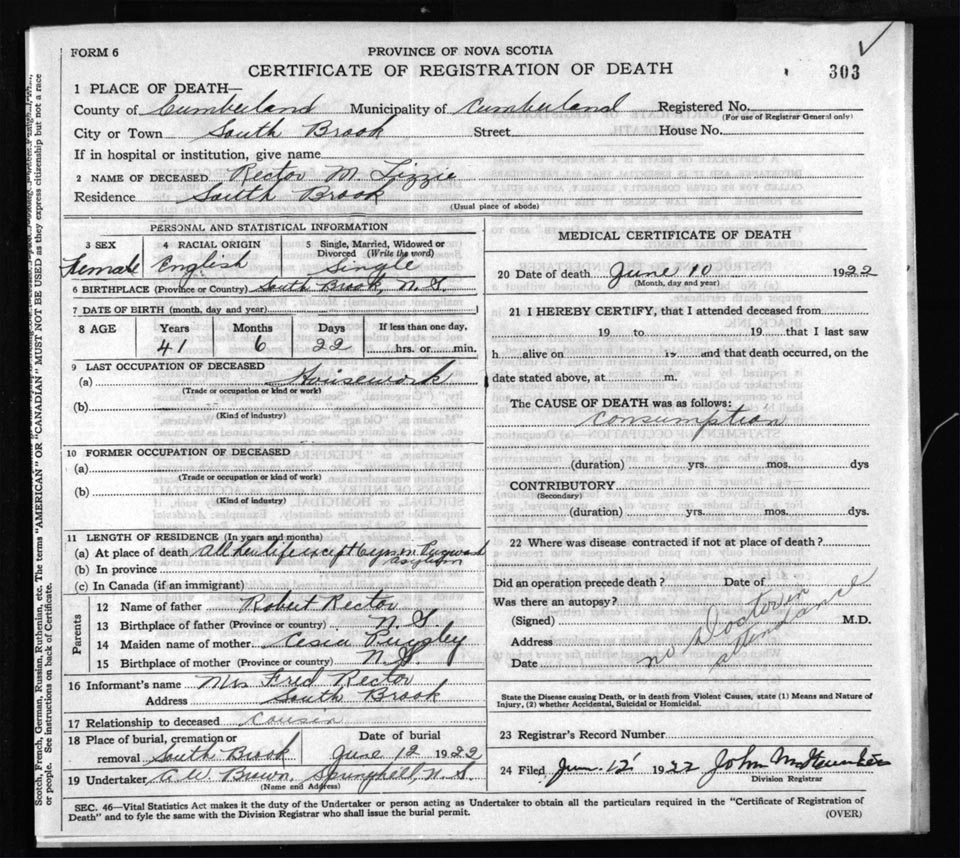 FORM 6
PROVINCE OF NOVA SCOTIA
CERTIFICATE OF REGISTRATION OF DEATH
303
1 PLACE OF DEATH—
County of Cumberland Municipality of Cumberland Registered No.
(For use of Registrar General only)
City or Town South Brook Street House No.
If in hospital or institution, give name
2 NAME OF DECEASED Rector M. Lizzie
Residence South Brook
(Usual place of abode)
PERSONAL AND STATISTICAL INFORMATION
3 SEX 4 RACIAL ORIGIN 5 Single, Married, Widowed or Divorced (Write the word)
Female English Single
6 BIRTHPLACE (Province or Country) South Brook, N.S.
7 DATE OF BIRTH (month, day and year)
8 AGE Years Months Days If less than one day,
41 6 22 hrs. or min.
9 LAST OCCUPATION OF DECEASED
(a) Housework
(Trade or occupation or kind or work)
(b)
(Kind of industry)
10 FORMER OCCUPATION OF DECEASED
(a)
(Trade or occupation or kind of work)
(b)
(Kind of industry)
11 LENGTH OF RESIDENCE (In years and months)
(a) At place of death all her life except yrs in
asylum
(b) In province
(c) In Canada (if an immigrant)
Parents
12 Name of father Robert Rector
13 Birthplace of father (Province or country) N.S.
14 Maiden name of mother Pugsley
15 Birthplace of mother (Province or country) N.S.
16 Informant's name Mrs Fred Rector
Address South Brook
17 Relationship to deceased Cousin
18 Place of burial, cremation or removal South Brook
Date of burial
June 12 1922
19 Undertaker A.W. Brown, Springhill, N.S.
(Name and Address)
MEDICAL CERTIFICATE OF DEATH
20 Date of death June 10 1922
(Month, day and year)
21 I HEREBY CERTIFY, that I attended deceased from
19 to 19 that I last saw
h alive on 19 and that death occurred, on the
date stated above, at m.
The CAUSE OF DEATH was as follows:
Consumption
(duration) yrs. mos. dys
CONTRIBUTORY
(Secondary)
(duration) yrs. mos. dys.
22 Where was disease contracted if not at place of death?
Did an operation precede death? Date of
Was there an autopsy?
(Signed) M.D.
Address
Date
no Doctor in
attendance
State the Disease causing Death, or in death from Violent Causes, state (1) Means and Nature of
Injury, (2) whether Accidental, Suicidal or Homicidal.
23 Registrar's Record Number
24 Filed Jun. 12 1922 John
Division Registrar
SEC. 46—Vital Statistics Act makes it the duty of the Undertaker or person acting as Undertaker to obtain all the particulars required in the "Certificate of Registration of
Death" and to fyle the same with the Division Registrar who shall issue the burial permit.
(OVER)
Scotch, French, German, Russian, Ruthenian, etc. The terms "AMERICAN" OR "CANADIAN" MUST NOT BE USED as they express citizenship but not a race
or people. See instructions on back of Certificate.